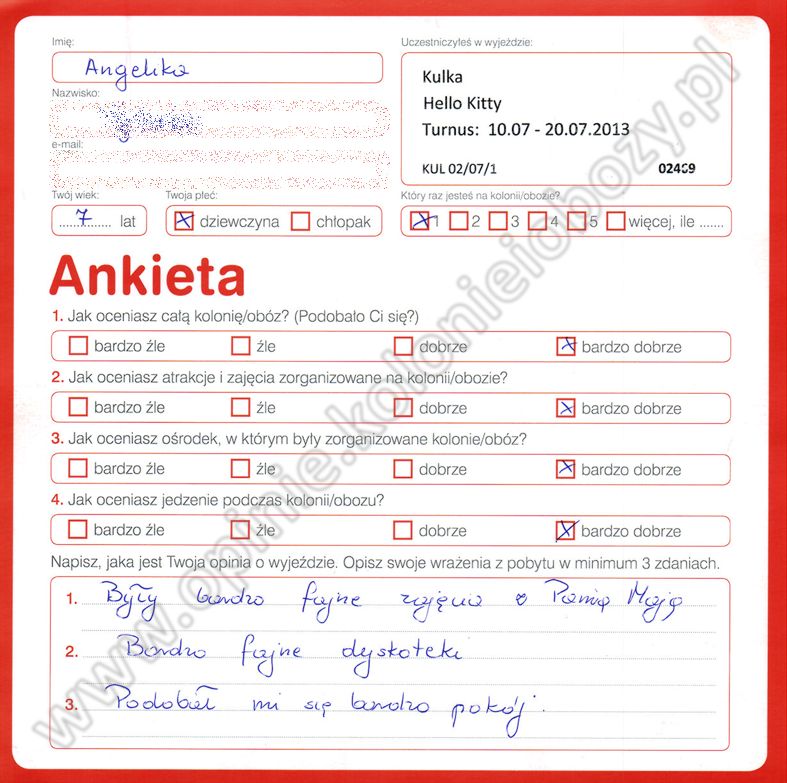 Imię:
Angelika
Nazwisko:
e-mail:
Twój wiek:
7 lat
Twoja płeć:
dziewczyna chłopak
Uczestniczyłeś w wyjeździe:
Kulka
Hello Kitty
Turnus: 10.07 - 20.07.2013
KUL 02/07/1 02469
Który raz jesteś na kolonii/obozie?
1 2 3 4 5 więcej, ile .......
Ankieta
1. Jak oceniasz całą kolonię/obóz? (Podobało Ci się?)
bardzo źle źle dobrze bardzo dobrze
2. Jak oceniasz atrakcje i zajęcia zorganizowane na kolonii/obozie?
bardzo źle źle dobrze bardzo dobrze
3. Jak oceniasz ośrodek, w którym były zorganizowane kolonie/obóz?
bardzo źle źle dobrze bardzo dobrze
4. Jak oceniasz jedzenie podczas kolonii/obozu?
bardzo źle źle dobrze bardzo dobrze
Napisz, jaka jest Twoja opinia o wyjeździe. Opisz swoje wrażenia z pobytu w minimum 3 zdaniach.
1. Były bardzo fajne zajęcia Panią Mają
2. Bardzo fajne dyskoteki
3. Podobał mi się bardzo pokój.
www.opinie.kolonieiobozy.pl